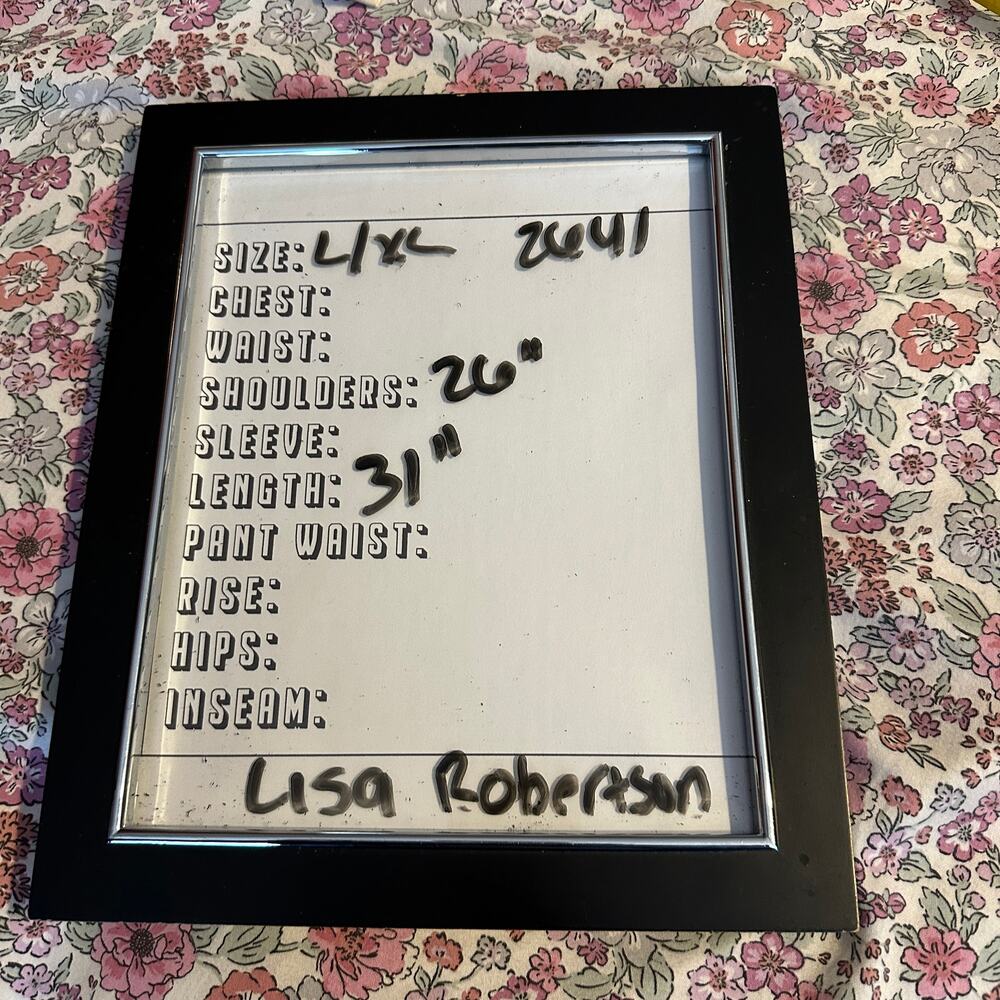 SIZE: L/XL 2641
CHEST:
WAIST:
SHOULDERS: 26"
SLEEVE:
LENGTH: 31"
PANT WAIST:
RISE:
HIPS:
INSEAM:
Lisa Robertson